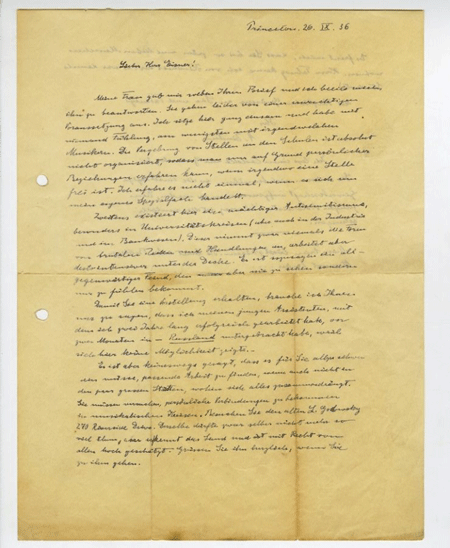 Princeton. 26. IX. 36
Lieber Herr Eisner!
Meine Frau gab mir soeben Ihren Brief und ich beeile mich
ihn zu beantworten. Sie gehen leider von einer unrichtigen
Voraussetzung aus. Ich sitze hier ganz einsam und habe mit
niemand Fühlung, am wenigsten mit irgendwelchen
Musikern. Die Vergebung von Stellen an den Schulen ist absolut
nicht organisiert, sodass man nur auf Grund persönlicher
Beziehungen erfahren kann, wenn irgendwo eine Stelle
frei ist. Ich erfahre es nicht einmal, wenn es sich um
mein eigenes Spezialfach handelt.
Zweitens existiert hier ein mächtiger Antisemitismus,
besonders im Universitätskreisen (aber auch in der Industrie
und im Bankwesen). Dies nimmt zwar niemals die Form
von brutalen Reden und Handlungen an, arbeitet aber
desto intensiver unter der Decke. Es ist sozusagen ein all-
gegenwärtiger Feind, den man aber nie zu sehen sondern
nur zu fühlen bekommt.
Damit Sie eine erhalten, brauche ich Ihnen
nur zu sagen, dass ich meinen jungen Assistenten, mit
dem ich zwei Jahre lang erfolgreich gearbeitet habe, vor
zwei Monaten in – Russland untergebracht habe, weil
sich hier keine Möglichkeit zeigte.
Es ist aber keineswegs gesagt, dass es für Sie allzu schwer
sein müsse, passende Arbeit zu finden, wenn auch nicht in
den paar grossen Städten, wohin sich alles zusammendrängt.
Sie müssen versuchen, persönliche Verbindungen zu bekommen
in musikalischen Häusern. Besuchen Sie den alten
270 Riverside Drive. Derselbe dürfte zwar selber nicht mehr so
viel thun, aber er kennt das Land und ist mit Recht von
allen hoch geschätzt. Grüssen Sie ihn herzlich, wenn Sie
zu ihm gehen.